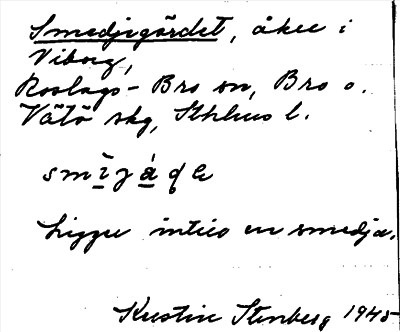 Smedjegärdet, åker i
Viborg,
Roslags-Bro sn, Bro o.
Vätö skg, Sthlms l.
Ligger intill en smedja.
Kerstin Stenberg 1945